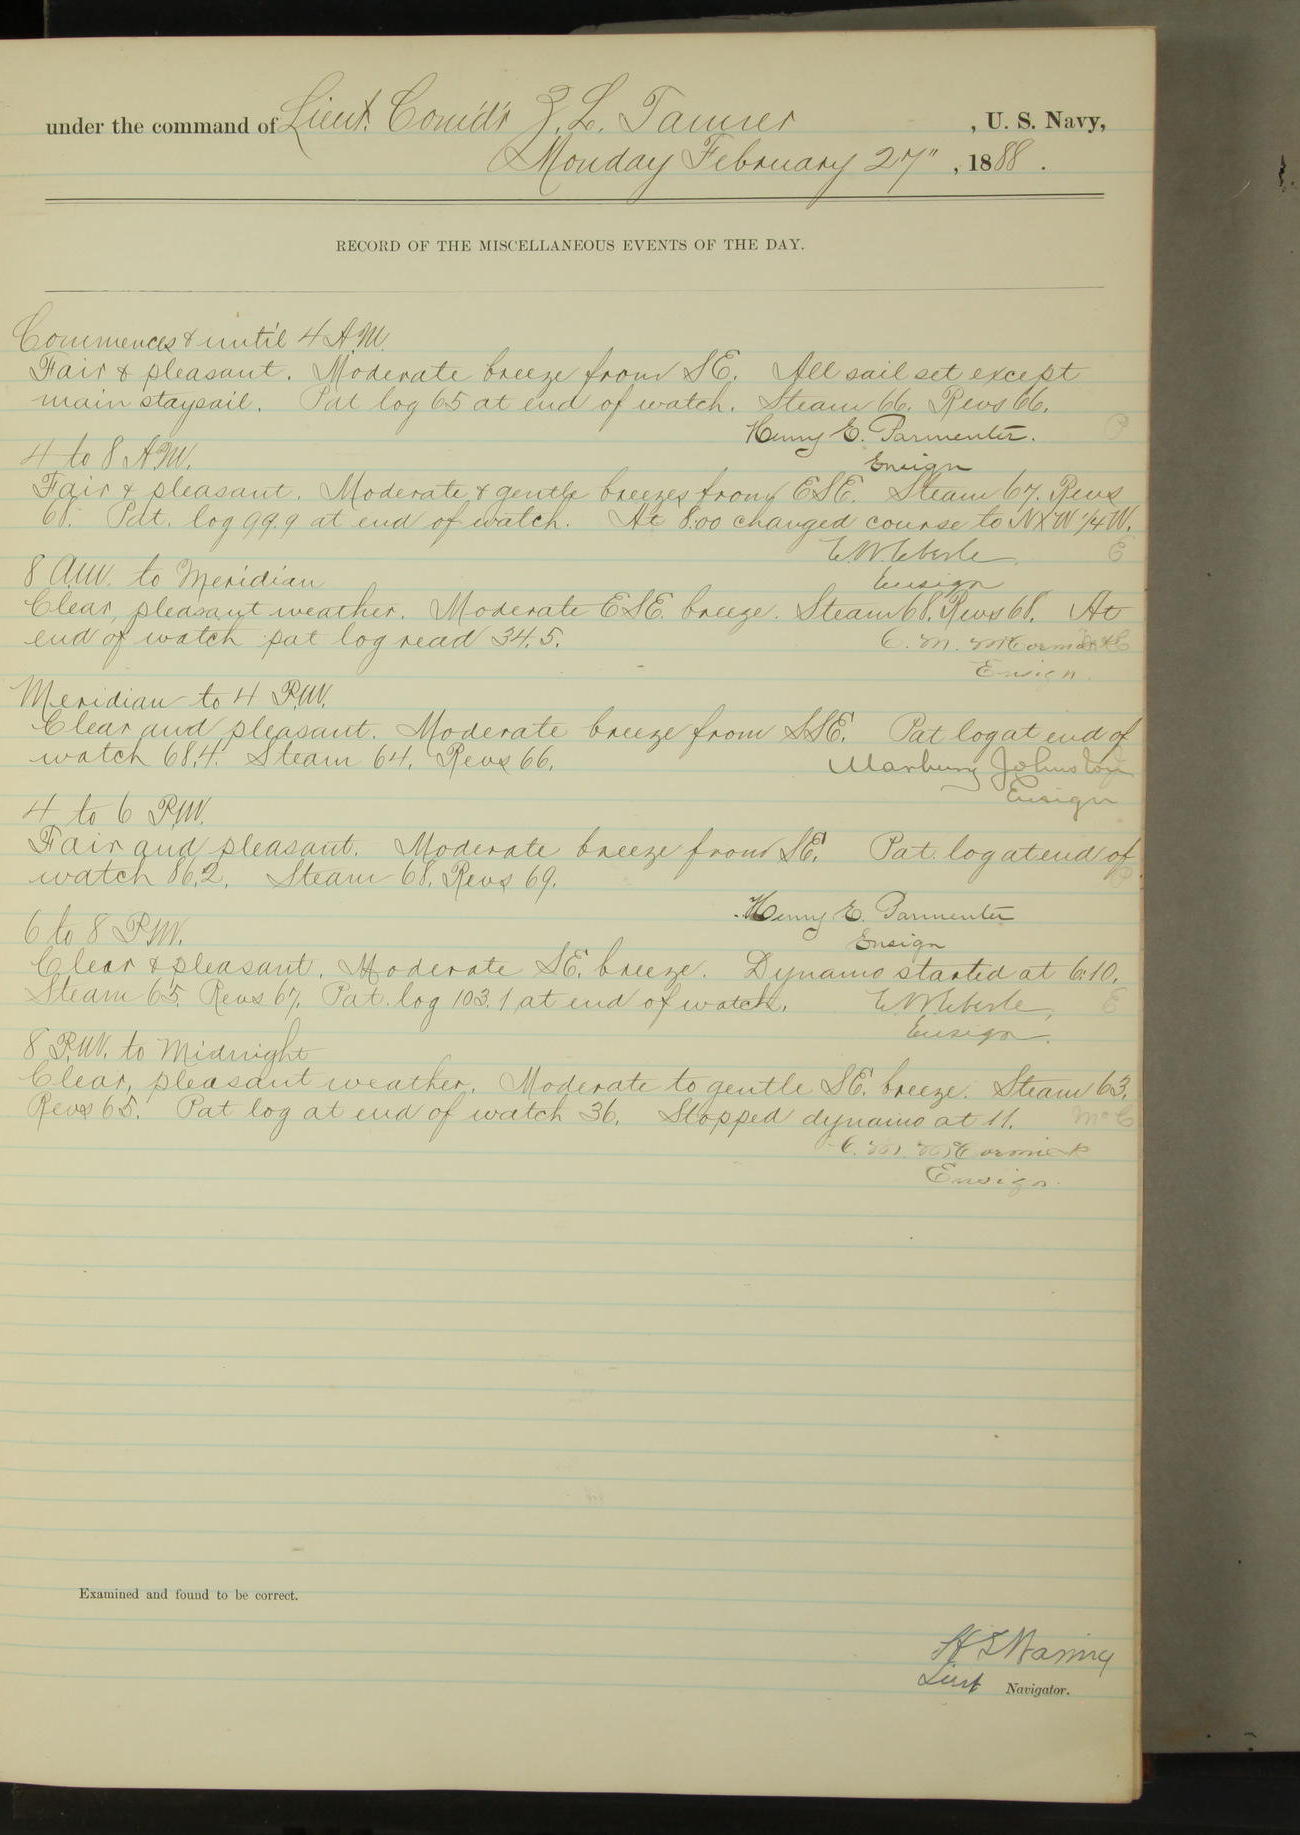 under the command of Lieut. Comd'r Z. L. Tanner, U. S. Navy,
Monday February 27", 1888.
RECORD OF THE MISCELLANEOUS EVENTS OF THE DAY.
Commences & until 4 A.M.
Fair & pleasant. Moderate breeze from SE. All sail set except
main staysail. Pat log 65 at end of watch. Steam 66. Revs 66.
Henry E. Parmenter. P
Ensign
4 to 8 A.M.
Fair & pleasant. Moderate & gentle breezes from ESE. Steam 67. Revs
68. Pat. log 99.9 at end of watch. At 8:00 changed course to NXW 1/4 W.
E.W. Eberle. E
Ensign
8 A.M. to Meridian
Clear, pleasant weather. Moderate ESE. breeze. Steam 68. Revs 68. At
end of watch pat log read 34.5. C. M. McCormick
Ensign.
Meridian to 4 P.M.
Clear and pleasant. Moderate breeze from SSE. Pat log at end of
watch 68.4. Steam 64. Revs 66. Marbury Johnston
Ensign
4 to 6 P.M.
Fair and pleasant. Moderate breeze from SE. Pat. log at end of
watch 86.2. Steam 68. Revs 69. P
Henry E. Parmenter
Ensign
6 to 8 P.M.
Clear & pleasant. Moderate SE. breeze. Dynamo started at 6:10.
Steam 65. Revs 67. Pat. log 103.1 at end of watch. E W Eberle, E
Ensign.
8 P.M. to Midnight
Clear, pleasant weather. Moderate to gentle SE. breeze. Steam 63.
Revs 65. Pat log at end of watch 36. Stopped dynamo at 11. McC
C. M. McCormick
Ensign.
Examined and found to be correct.
H S Waring
Lieut Navigator.